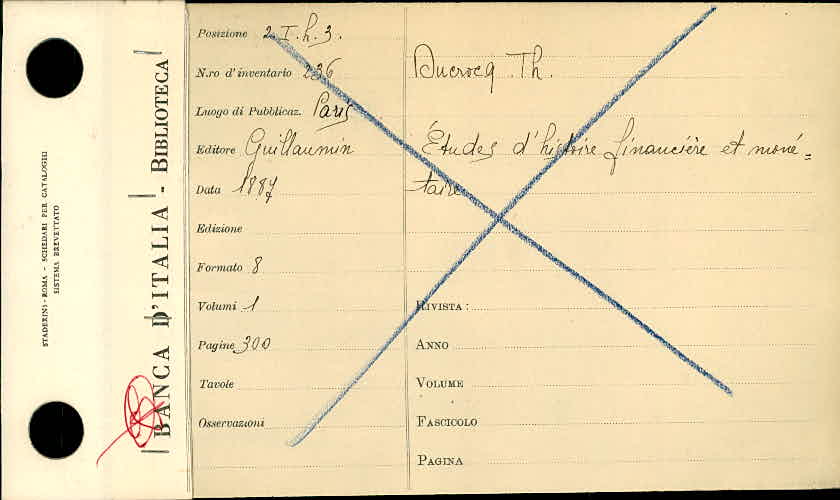 STADERINI - ROMA - SCHEDARI PER CATALOGHI
SISTEMA BREVETTATO
BANCA D'ITALIA - BIBLIOTECA
Posizione 2. I. h. 3.
N.ro d'inventario 236
Luogo di Pubblicaz. Paris
Editore Guillaumin
Data 1887
Edizione
Formato 8
Volumi 1
Pagine 300
Tavole
Osservazioni
Ducrocq Th.
Études d'histoire financière et moné=
taire
RIVISTA :
ANNO
VOLUME
FASCICOLO
PAGINA